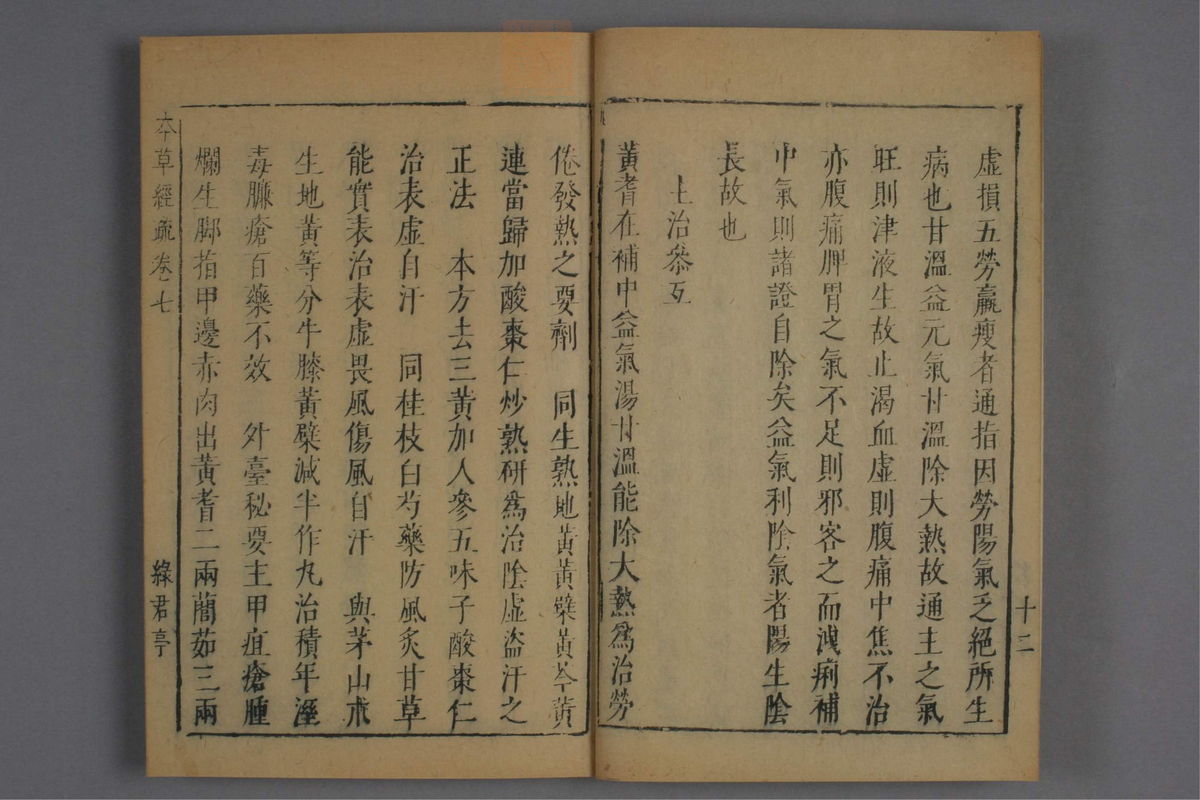 十二
虛損五勞羸瘦者通指因勞陽氣乏絕所生
病也甘溫益元氣甘溫除大熱故通主之氣
旺則津液生故止渴血虛則腹痛中焦不治
亦腹痛脾胃之氣不足則邪客之而洩痢補
中氣則諸證自除矣益氣利陰氣者陽生陰
長故也
主治叅互
黃耆在補中益氣湯甘溫能除大熱爲治勞
倦發熱之要劑　同生熟地黃黃蘗黃芩黃
連當歸加酸棗仁炒熟研爲治陰虛盜汗之
正法　本方去三黃加人參五味子酸棗仁
治表虛自汗　同桂枝白芍藥防風炙甘草
能實表治表虛畏風傷風自汗　與茅山朮
生地黃等分牛膝黃蘗減半作丸治積年溼
毒臁瘡百藥不效　外臺秘要主甲疽瘡腫
爛生脚指甲邊赤肉出黃耆二兩䕡茹三兩
本草經疏卷七
綠君亭